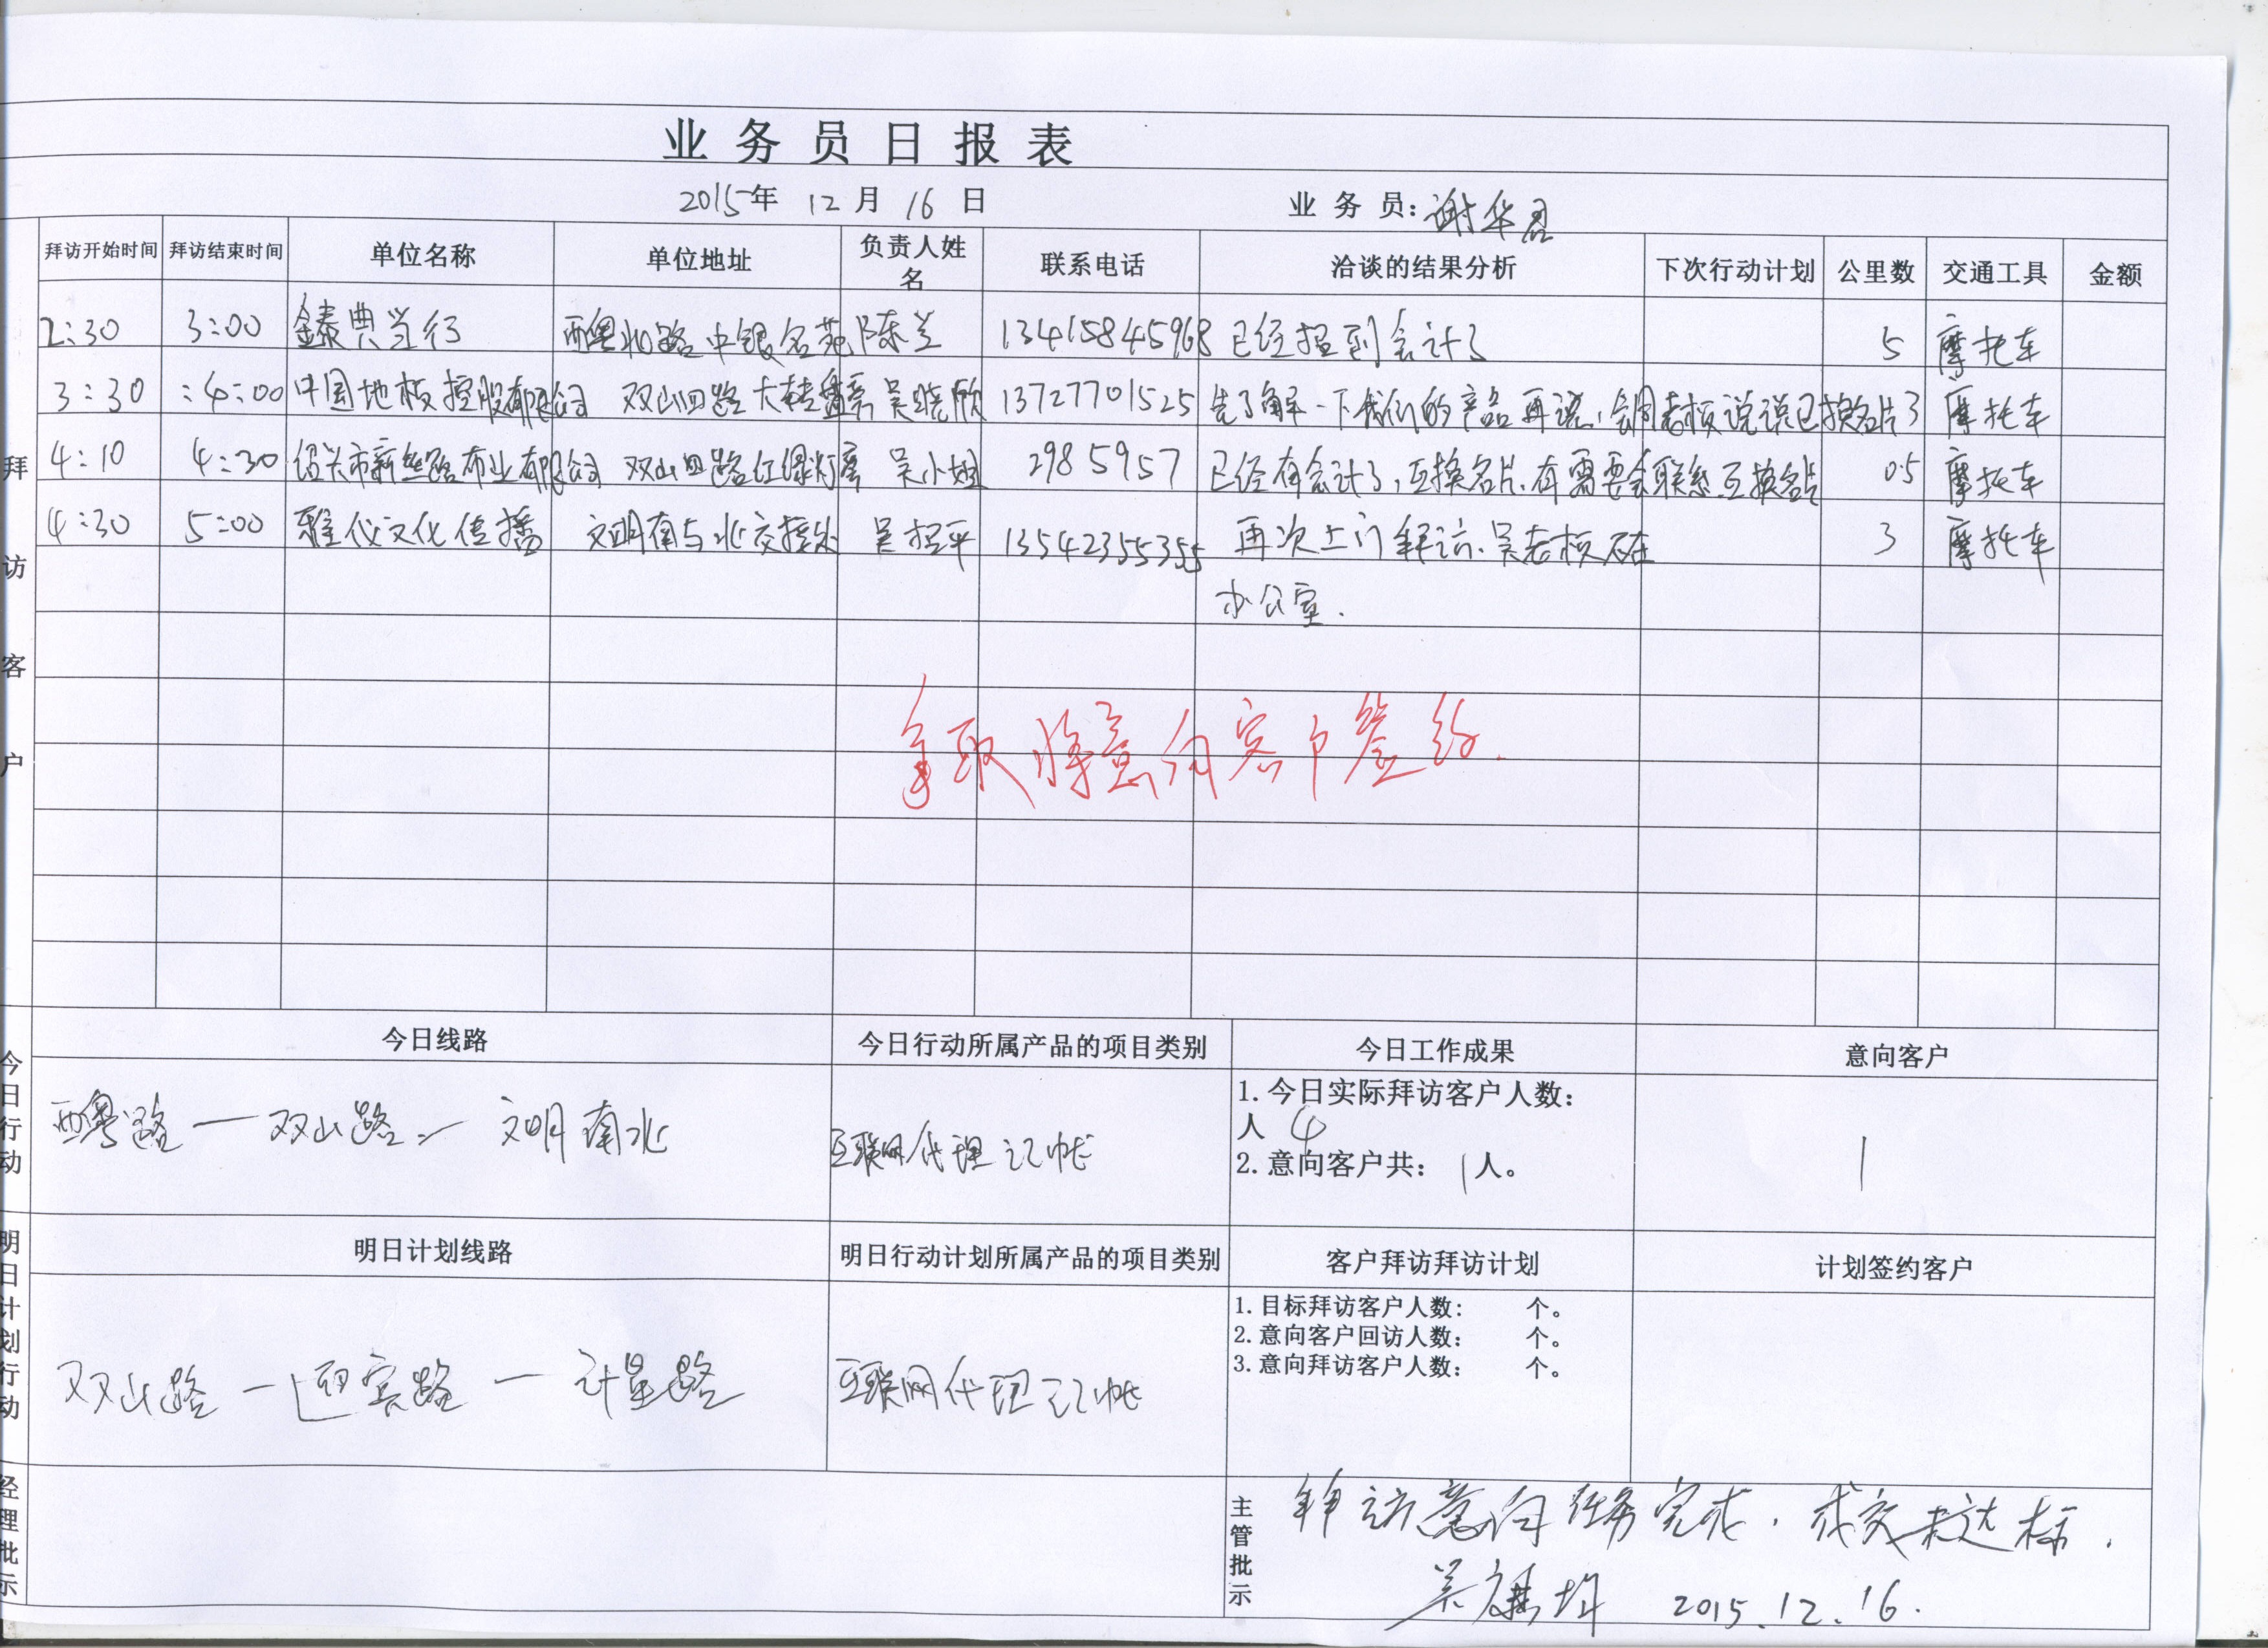 业务员日报表
2015年 12月 16日 业务员:谢华君
拜访开始时间 拜访结束时间 单位名称 单位地址 负责人姓名 联系电话 洽谈的结果分析 下次行动计划 公里数 交通工具 金额
拜访客户
2:30 3:00 鑫泰典当行 西粤北路中银名苑 陈兰 13415845968 已经招到会计了 5 摩托车
3:30 :4:00 中国地板控股有限公司 双山四路大转盘旁 吴晓欣 13727701525 先了解一下我们的产品再说,会同老板说说已换名片了 摩托车
4:10 4:30 汕头市新丝路布业有限公司 双山四路红绿灯旁 吴小姐 2985957 已经有会计了,互换名片,有需要会联系互换名片 0.5 摩托车
4:30 5:00 雅仪文化传播 文明南与北交接处 吴招平 13542355355 再次上门拜访.吴老板不在
办公室.
3 摩托车
争取将意向客户签约.
今日行动
今日线路 今日行动所属产品的项目类别 今日工作成果 意向客户
西粤路一双山路一文明南北 互联网代理记帐
1.今日实际拜访客户人数:
人 4
2.意向客户共: 1人。
1
明日计划行动
明日计划线路 明日行动计划所属产品的项目类别 客户拜访拜访计划 计划签约客户
双山路一迎宾路一计星路 互联网代理记帐
1.目标拜访客户人数: 个。
2.意向客户回访人数: 个。
3.意向拜访客户人数: 个。
经理批示
主管批示
拜访意向任务完成.成交未达标.
2015.12.16.